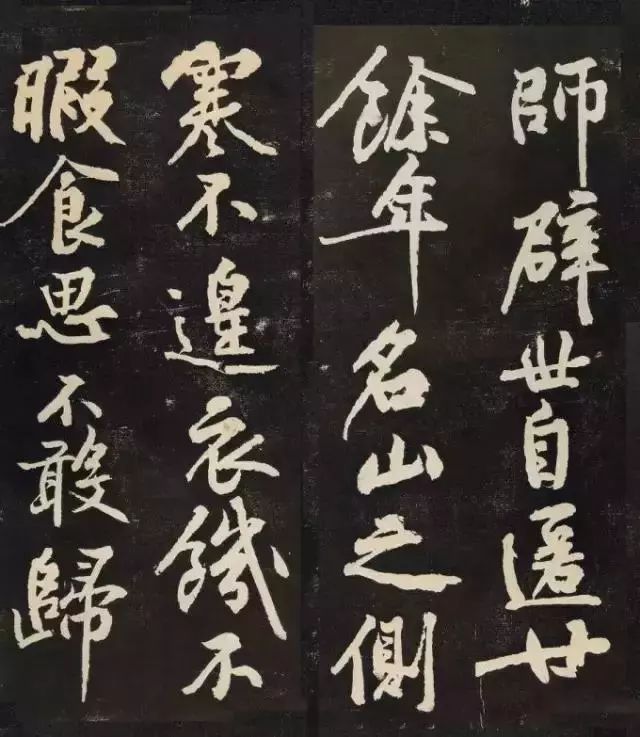 師辟世自遁廿
餘年名山之側
寒不遑衣饑不
暇食思不敢歸